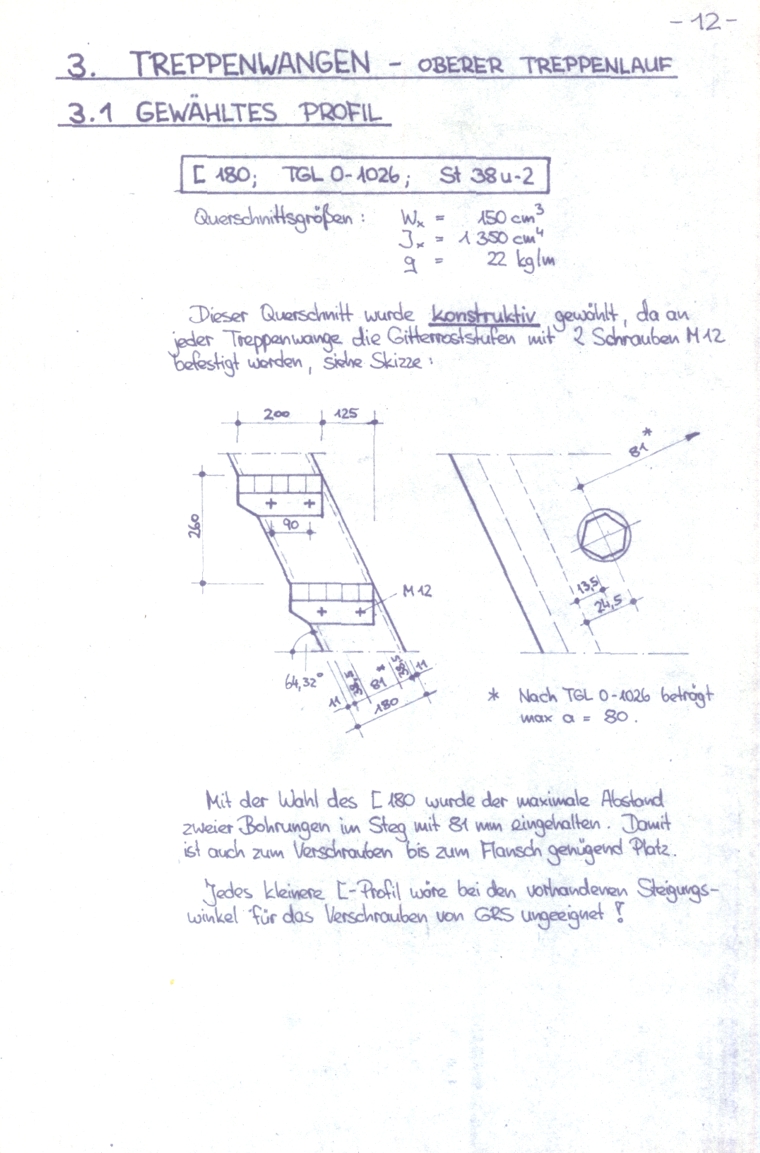 -12-
3. TREPPENWANGEN - OBERER TREPPENLAUF
3.1 GEWÄHLTES PROFIL
[ 180; TGL 0-1026; St 38 u-2
Querschnittsgrößen: Wx = 150 cm³
Jx = 1 350 cm⁴
g = 22 kg/m
Dieser Querschnitt wurde konstruktiv gewählt, da an
jeder Treppenwange die Gitterroststufen mit 2 Schrauben M 12
befestigt werden, siehe Skizze:
200 125
81*
260
90
13,5
24,5
M 12
64,32°
11 81* 11
180
* Nach TGL 0-1026 beträgt
max a = 80.
Mit der Wahl des [ 180 wurde der maximale Abstand
zweier Bohrungen im Steg mit 81 mm eingehalten. Damit
ist auch zum Verschrauben bis zum Flansch genügend Platz.
Jedes kleinere [-Profil wäre bei den vorhandenen Steigungs-
winkel für das Verschrauben von GRS ungeeignet!